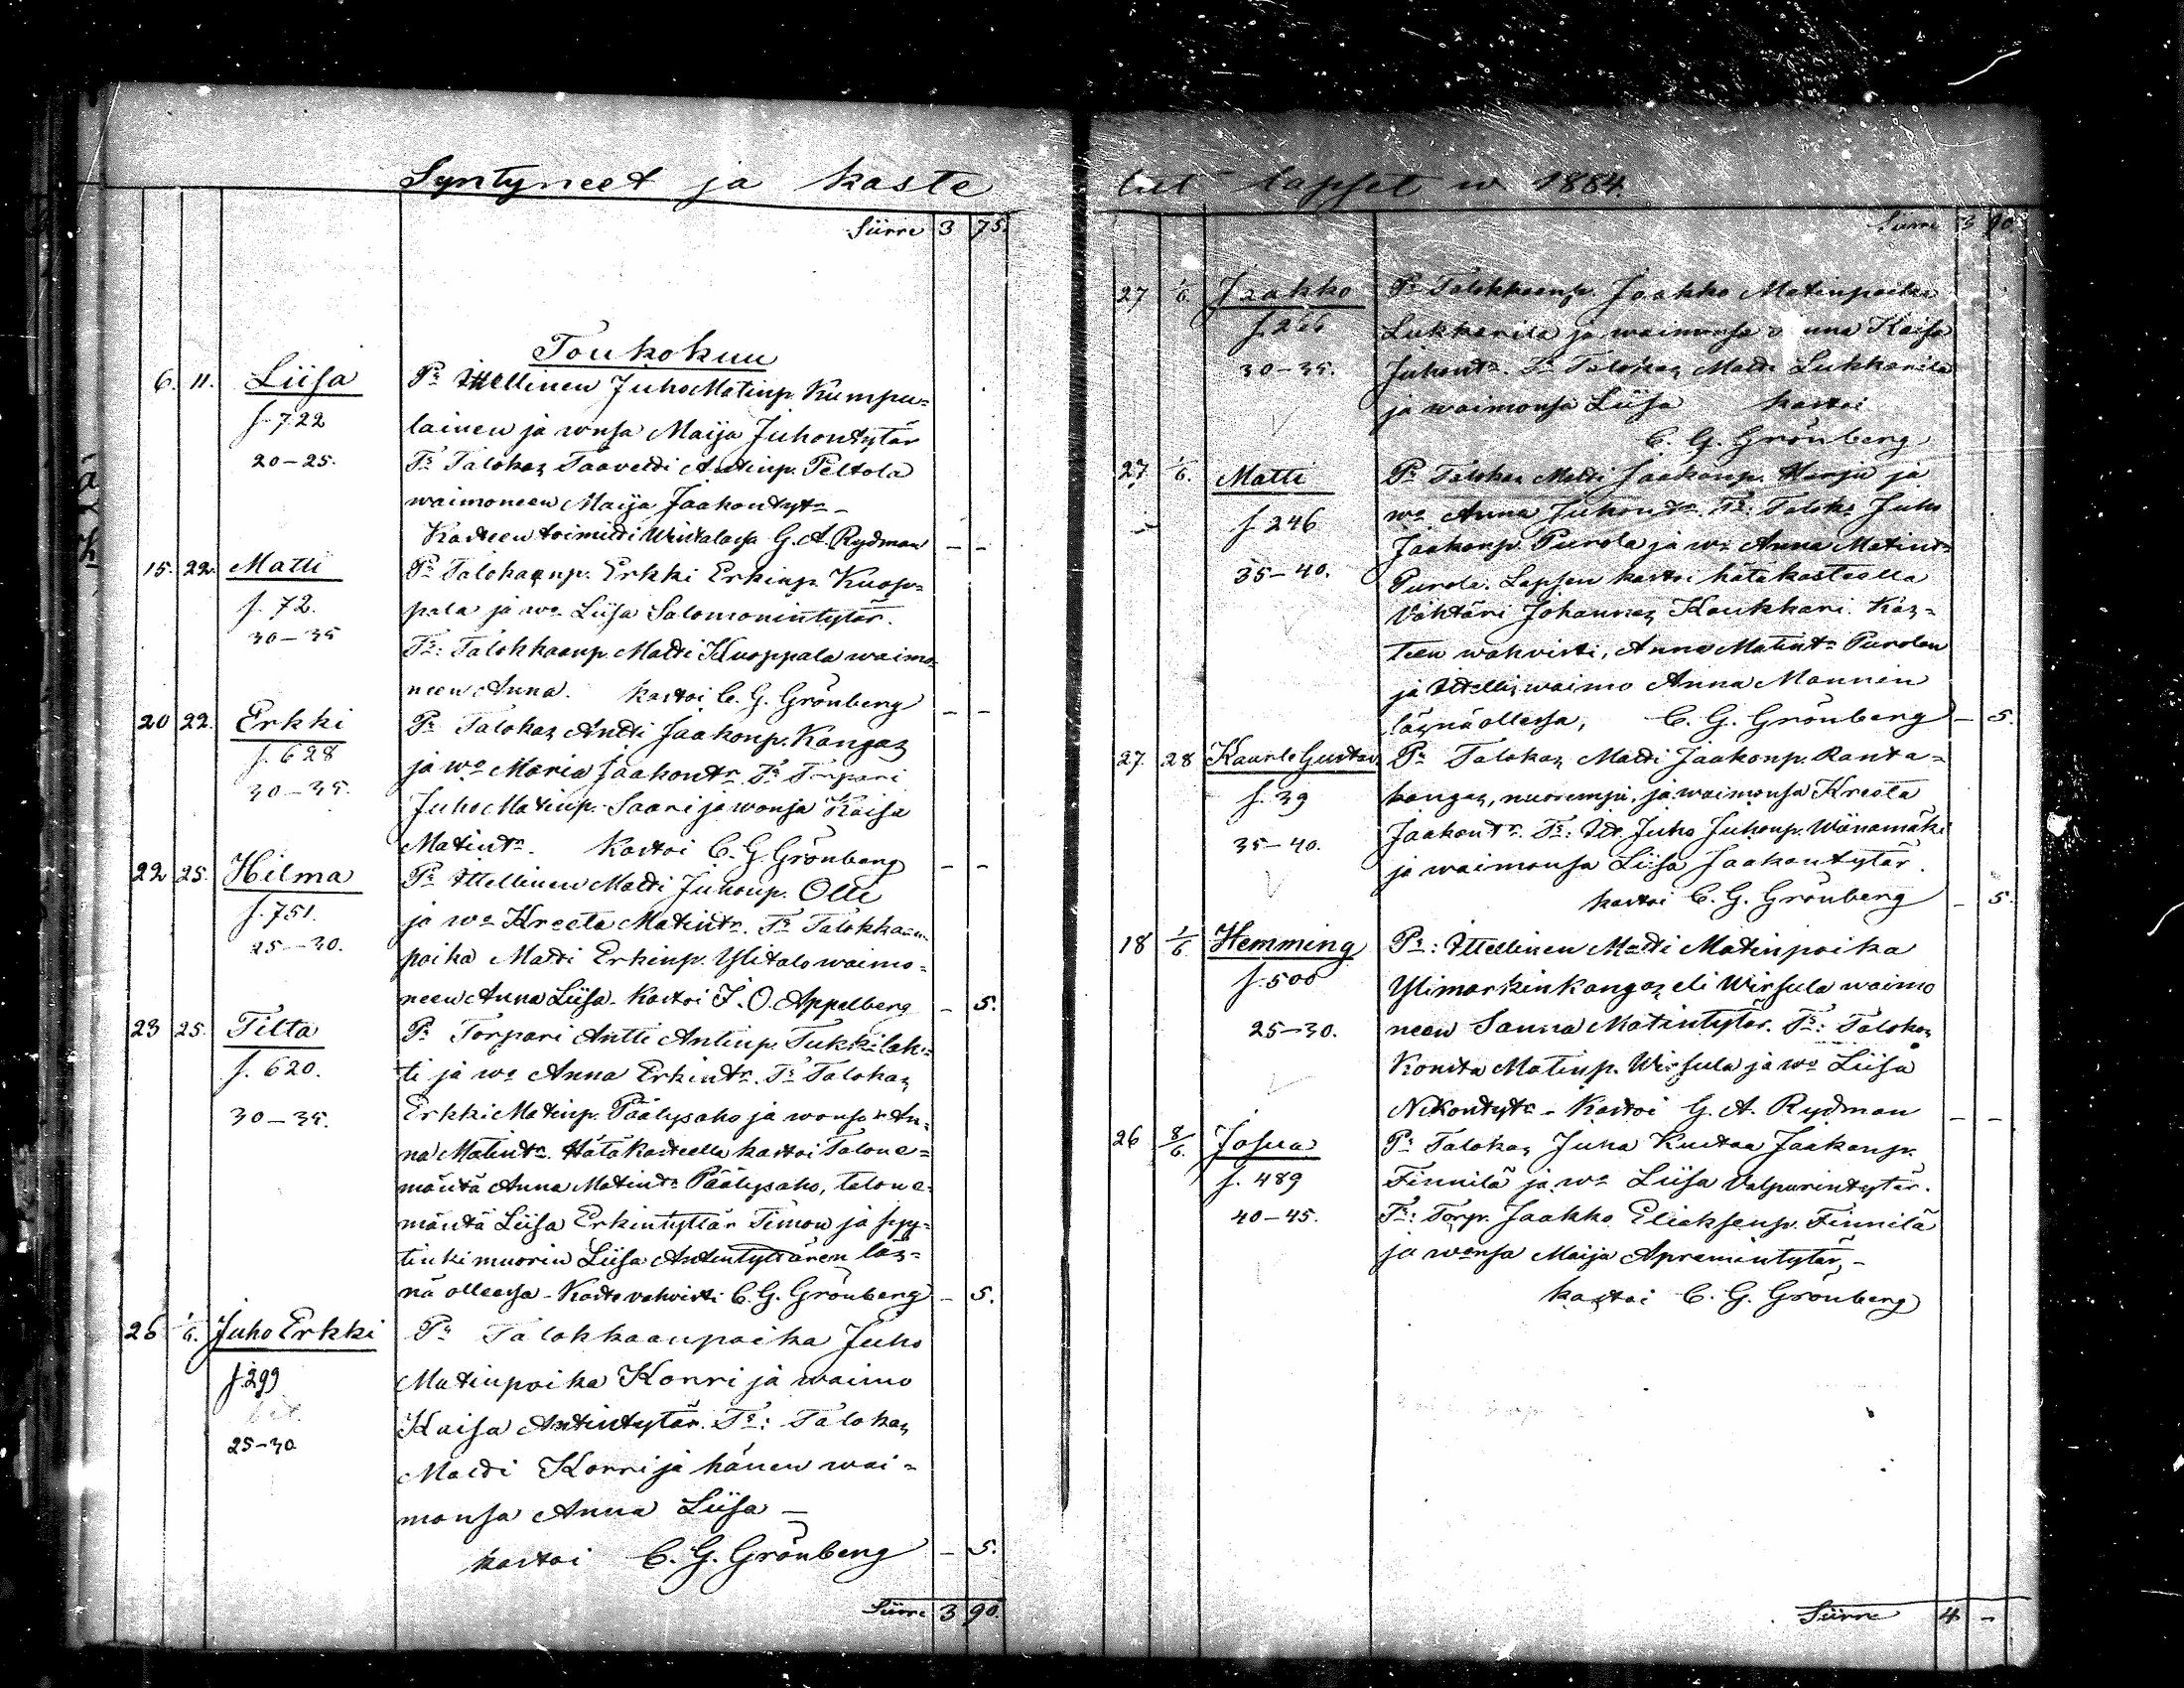 Syntyneet ja kaste
Siirre 3 75.
Toukokuu
6. 11. Liisa Pr Ittellinen Juho Matinp. Kumpu=
f. 722 lainen ja wnsa Maija Juhontytär
20-25. Fr Talokas Taavetti Antinp. Peltola
waimoneen Maija Jaakontytr -
Kasteen toimitti Wirtalassa G. A. Rydman - -
15. 22. Matti Pr Talokaanp. Erkki Erkinp. Kuop=
f. 72. pala ja wo Liisa Salomonintytär.
30-35 Fr: Talokkaanp. Matti Kuoppala waimo=
neen Anna. kastoi C. G. Grönberg - -
20 22. Erkki Pr Talokas Antti Jaakonp. Kangas
f. 628 ja wo Maria Jaakontr. Fr Torpari
30-35. Juho Matinp. Saari ja wonsa Kaisa
Matintr. kastoi C. G. Grönberg - -
22 25. Hilma Pr Ittellinen Matti Juhonp. Olli
f. 751. ja wo Kreeta Matintr. Fr Talokkaan
25-30. poika Matti Erkinp. Ylitalo waimo=
neen Anna Liisa. kastoi J. O. Appelberg - 5.
23 25. Tilta Pr Torpari Antti Antinp. Tukkilah=
f. 620. ti ja wo Anna Erkintr. Fr Talokas
30-35. Erkki Matinp. Päälysaho ja wonsa An=
na Matintr. Hätäkasteella kastoi Talone=
mäntä Anna Matintr Päälysaho, talone=
mäntä Liisa Erkintyttär Timon ja syy=
tinkimuorin Liisa Antintyttären läs=
nä ollessa - Kaste vahvisti C. G. Grönberg - 5.
26 1/6. Juho Erkki Pr Talokkaanpoika Juho
f. 299 Matinpoika Korri ja waimo
25-30. Kaisa Antintytär. Fr: Talokas
Matti Korri ja hänen wai=
monsa Anna Liisa -
kastoi C. G. Grönberg - 5.
Siirre 3 90.
tut lapset w. 1884.
Siirre 3 90
27 1/6. Jaakko Pr Talokkaanp. Jaakko Matinpoika
f. 266 Lukkarila ja waimonsa Anna Kaisa
30-35. Juhontr. Fr Talokas Matti Lukkarila
ja waimonsa Liisa kastoi
C. G. Grönberg
27. 1/6. Matti Pr Talokas Matti Jaakonp. Harju ja
f. 246 wo Anna Juhontr. Fr: Talok. Juho
Jaakonp. Purola ja wo Anna Matintr
35-40. Purola. Lapsen kastoi hätäkasteella
Vahtäri Johannes Koukkari. Kas=
teen wahvisti, Anna Matintr Purolan
ja Ittellis waimo Anna Mannin
läsnäollessa, C. G. Grönberg - 5.
27. 28 Kaarlo Gustav Pr Talokas Matti Jaakonp. Ranta=
f. 39 kangas, nuorempi, ja waimonsa Kreeta
35-40. Jaakontr. Fr: Itt. Juho Juhonp. Wänamäki
ja waimonsa Liisa Jaakontytär.
kastoi C. G. Grönberg - 5.
18 1/6. Hemming Pr: Ittellinen Matti Matinpoika
f. 500 Ylimarkinkangas eli Wirsula waimo
25-30. neen Sanna Matintytär. Fr: Talokas
Konsta Matinp. Wirsula ja wo Liisa
Nikontytr - Kastoi G. A. Rydman - -
26 8/6. Josua Pr Talokas Juha Kustaa Jaakonp.
f. 489 Finnilä ja wo Liisa Valpurintytär.
40-45. Fr: Torp. Jaakko Eliaksenp. Finnilä
ja wonsa Maija Apramintytär, -
kastoi C. G. Grönberg
Siirre 4 -